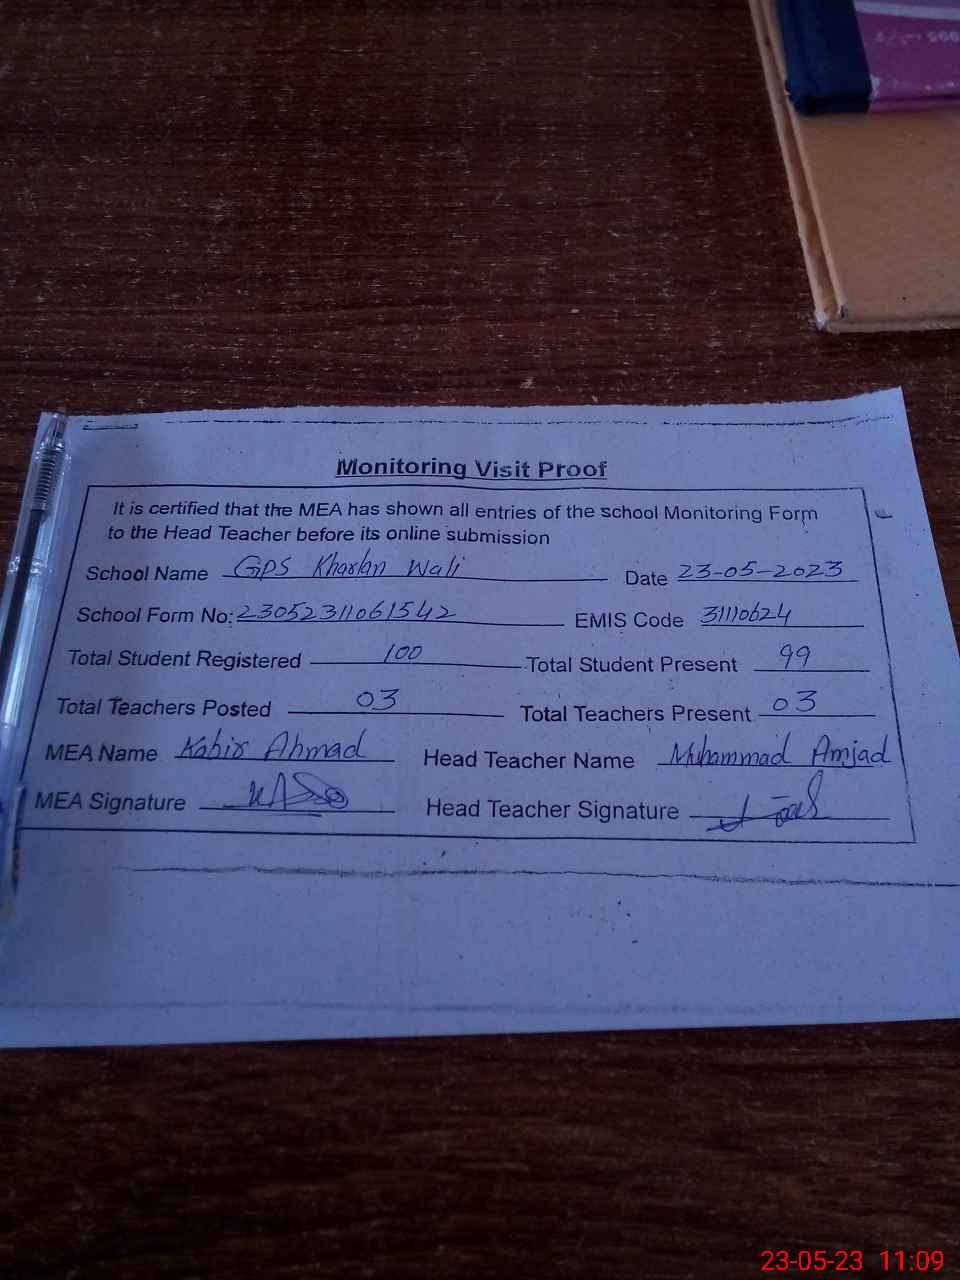 Monitoring Visit Proof
It is certified that the MEA has shown all entries of the school Monitoring Form
to the Head Teacher before its online submission
School Name GPS Kharlan Wali Date 23-05-2023
School Form No: 23052311061542 EMIS Code 31110624
Total Student Registered 100 Total Student Present 99
Total Teachers Posted 03 Total Teachers Present 03
MEA Name Kabir Ahmad Head Teacher Name Muhammad Amjad
MEA Signature Head Teacher Signature
23-05-23 11:09